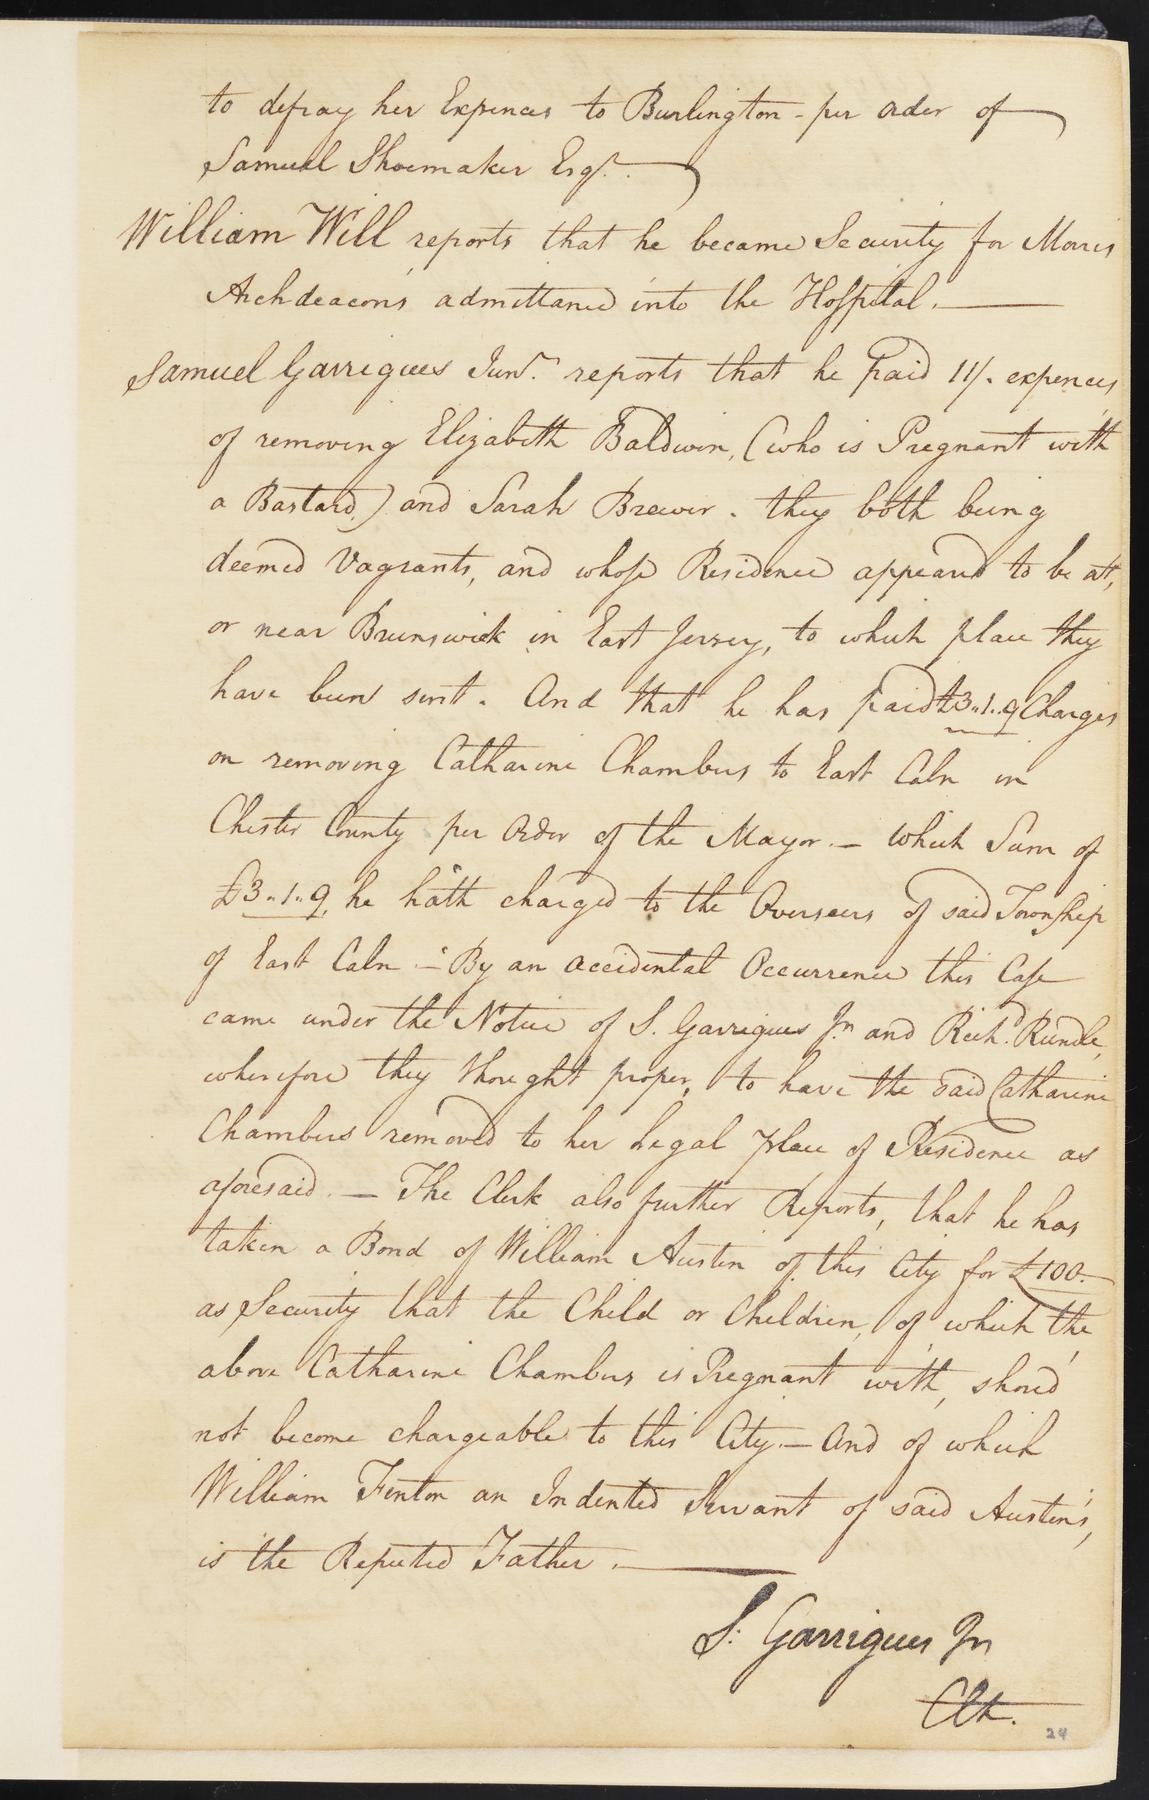 to defray her Expences to Burlington - per order of
Samuel Shoemaker Esqr.
William Will reports that he became Security for Morris
Archdeacon's admittance into the Hospital.
Samuel Garrigues Junr. reports that he paid 11/. expences
of removing Elizabeth Baldwin, (who is Pregnant with
a Bastard) and Sarah Brewer. they both being
deemed Vagrants, and whose Residence appeared to be at,
or near Brunswick in East Jersey, to which place they
have been sent. And that he has paid £3..1..9 Charges
on removing Catharine Chambers to East Caln in
Chester County per Order of the Mayor. — which Sum of
£3..1..9, he hath charged to the Overseers of said Township
of East Caln. — By an accidental Occurrence this Case
came under the Notice of S. Garrigues Jn and Richd. Rundle,
wherefore they thought proper, to have the said Catharine
Chambers removed to her Legal place of Residence as
aforesaid. — The Clerk also further Reports, that he has
taken a Bond of William Austin of this City for £100.
as Security that the Child or Children, of which the
above Catharine Chambers is Pregnant with, shou'd
not become chargeable to this City. — And of which
William Fenton an Indented Servant of said Austin's,
is the Reputed Father.
S: Garrigues Jn
Clk.
24